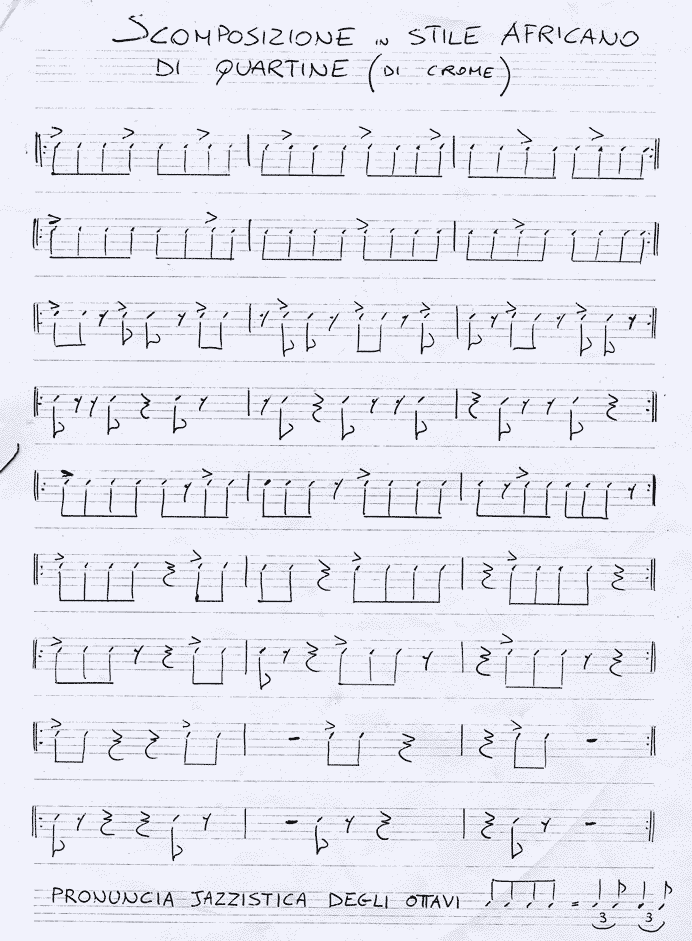 SCOMPOSIZIONE IN STILE AFRICANO
DI QUARTINE (DI CROME)
PRONUNCIA JAZZISTICA DEGLI OTTAVI =
3 3